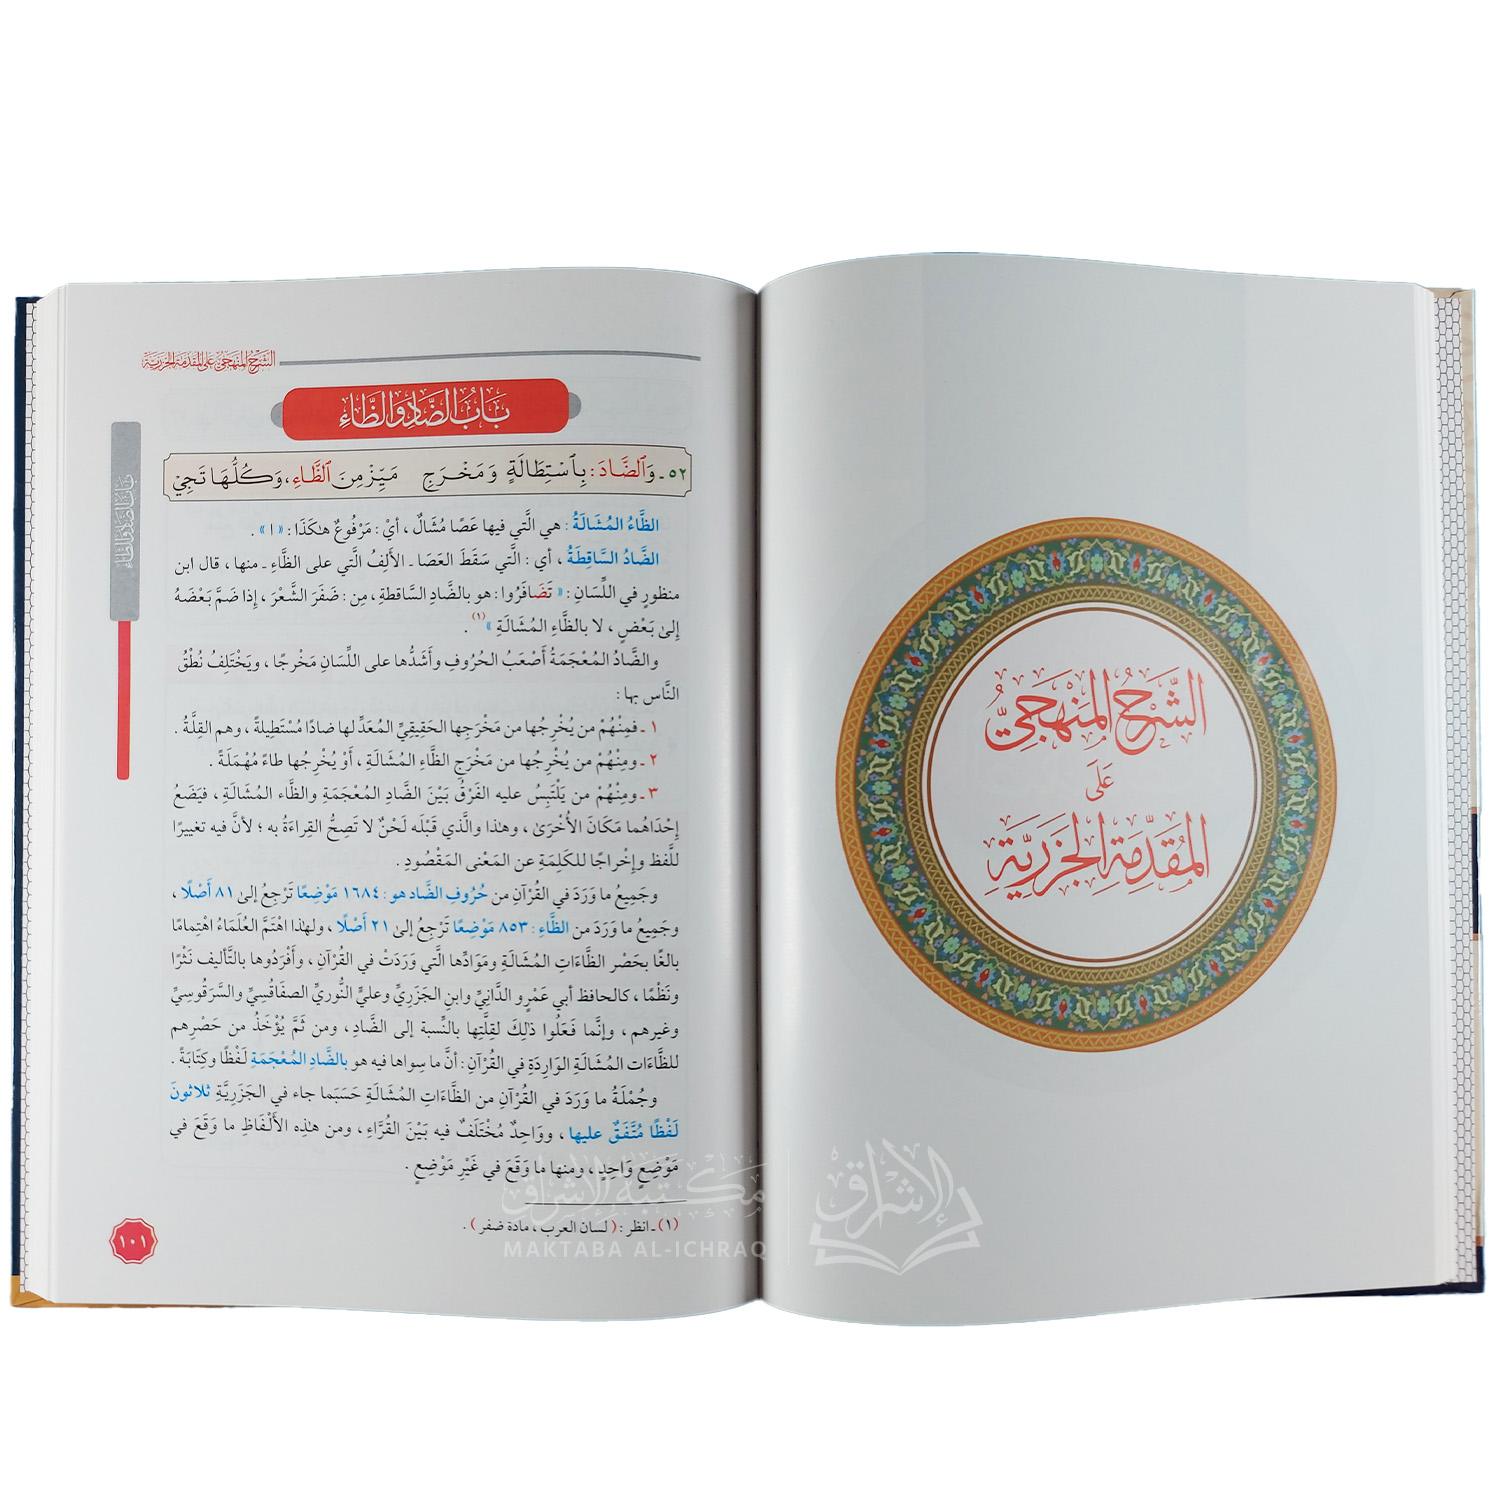 الشَّرْحُ المَنْهَجِيُّ
عَلَى
المُقَدِّمَةِ الجَزَرِيَّةِ
الشرح المنهجي على المقدمة الجزرية
بَابُ الضَّادِ وَالظَّاءِ
بَابُ الضَّادِ وَالظَّاءِ
٥٢ - وَالضَّادَ : بِاسْتِطَالَةٍ وَمَخْرَجِ مَيِّزْ مِنَ الظَّاءِ ، وَكُلُّهَا تَجِيْ
الظَّاءُ المُشَالَةُ : هي الَّتي فيها عَصًا مُشَالٌ ، أيْ : مَرْفُوعٌ هٰكَذَا : « ١ » .
الضَّادُ السَّاقِطَةُ ، أي : الَّتي سَقَطَ العَصَا ـ الأَلِفُ الَّتي على الظَّاءِ ـ منها ، قال ابن
منظورٍ في اللِّسَانِ : « تَضَافَرُوا : هو بالضَّادِ السَّاقطةِ ، مِن : ضَفَرَ الشَّعْرَ ، إذا ضَمَّ بَعْضَهُ
إلىٰ بَعْضٍ ، لا بالظَّاءِ المُشَالَةِ » (١) .
والضَّادُ المُعْجَمَةُ أَصْعَبُ الحُرُوفِ وأَشَدُّها على اللِّسَانِ مَخْرجًا ، ويَخْتَلِفُ نُطْقُ
النَّاس بها :
١ ـ فمِنْهُمْ من يُخْرِجُها من مَخْرَجِها الحَقِيقِيِّ المُعَدِّ لها ضادًا مُسْتَطِيلَةً ، وهم القِلَّةُ .
٢ ـ ومِنْهُمْ من يُخْرِجُها من مَخْرَجِ الظَّاءِ المُشَالَةِ ، أَوْ يُخْرِجُها طاءً مُهْمَلَةً .
٣ ـ ومِنْهُمْ من يَلْتَبِسُ عليه الفَرْقُ بَيْنَ الضَّادِ المُعْجَمَةِ والظَّاء المُشَالَةِ ، فيَضَعُ
إحْدَاهُما مَكَانَ الأُخْرَىٰ ، وهٰذا والَّذي قَبْلَه لَحْنٌ لا تَصِحُّ القِرَاءَةُ به ؛ لأنَّ فيه تغييرًا
للَّفظ وإخْراجًا للكَلِمَةِ عن المَعْنى المَقْصُودِ .
وجَمِيعُ ما وَرَدَ في القُرْآنِ من حُرُوفِ الضَّاد هو : ١٦٨٤ مَوْضِعًا تَرْجِعُ إلىٰ ٨١ أَصْلًا ،
وجَمِيعُ ما وَرَدَ من الظَّاءِ : ٨٥٣ مَوْضِعًا تَرْجِعُ إلىٰ ٢١ أَصْلًا ، ولهٰذا اهْتَمَّ العُلَمَاءُ اهْتِمَامًا
بالغًا بحَصْرِ الظَّاءَاتِ المُشَالَةِ ومَوَادِّها الَّتي وَرَدَتْ في القُرْآنِ ، وأَفْرَدُوها بالتَّأليف نَثْرًا
ونَظْمًا ، كالحافظ أبي عَمْرٍو الدَّانِيِّ وابنِ الجَزَرِيِّ وعليٍّ النُّوريِّ الصفَاقُسِيِّ والسَّرَقُوسِيِّ
وغيرهم ، وإنَّما فَعَلُوا ذٰلِكَ لقِلَّتِها بالنِّسبة إلى الضَّادِ ، ومن ثَمَّ يُؤْخَذُ من حَصْرِهم
للظَّاءَات المُشَالَةِ الوَارِدَةِ في القُرْآنِ : أنَّ ما سِواها فيه هو بالضَّادِ المُعْجَمَةِ لَفْظًا وكِتَابَةً .
وجُمْلَةُ ما وَرَدَ في القُرْآنِ من الظَّاءَاتِ المُشَالَةِ حَسَبَما جاء في الجَزَرِيَّةِ ثلاثونَ
لَفْظًا مُتَّفَقٌ عليها ، ووَاحِدٌ مُخْتَلَفٌ فيه بَيْنَ القُرَّاءِ ، ومن هٰذِه الأَلْفَاظِ ما وَقَعَ في
مَوْضِعٍ وَاحِدٍ ، ومنها ما وَقَعَ في غَيْرِ مَوْضِعٍ .
(١) ـ انظر : ( لسان العرب ، مادة ضفر ) .
١٠١
مكتبة الإشراق
MAKTABA AL-ICHRAQ
الإشراق